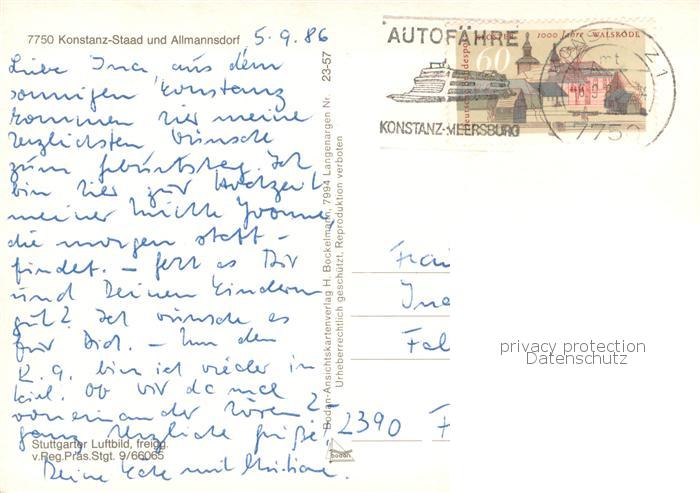 7750 Konstanz-Staad und Allmannsdorf 5.9.86
Liebe Ina aus dem
sonnigen Konstanz
kommen hier meine
herzlichsten Wünsche
zum Geburtstag. Ich
bin hier zur Hochzeit
meiner Yvonne,
die morgen statt-
findet. – geht es Dir
und Deinen Kindern
gut? Ich wünsche es
für Dich. – Um den
12.9. bin ich wieder in
Kiel. Ob wir da mal
voneinander hören? –
ganz herzliche Grüße
Deine mit Christiane.
Stuttgarter Luftbild, freigg.
v.Reg.Präs.Stgt. 9/66065
Bodan-Ansichtskartenverlag H. Bockelmann, 7994 Langenargen Nr. 23-57
Urheberrechtlich geschützt, Reproduktion verboten
bodan
AUTOFÄHRE
KONSTANZ-MEERSBURG
60
KLOSTER 1000 Jahre WALSRODE
Deutsche Bundespost
7750
Frau
Ina
Fel
2390 F
privacy protection
Datenschutz